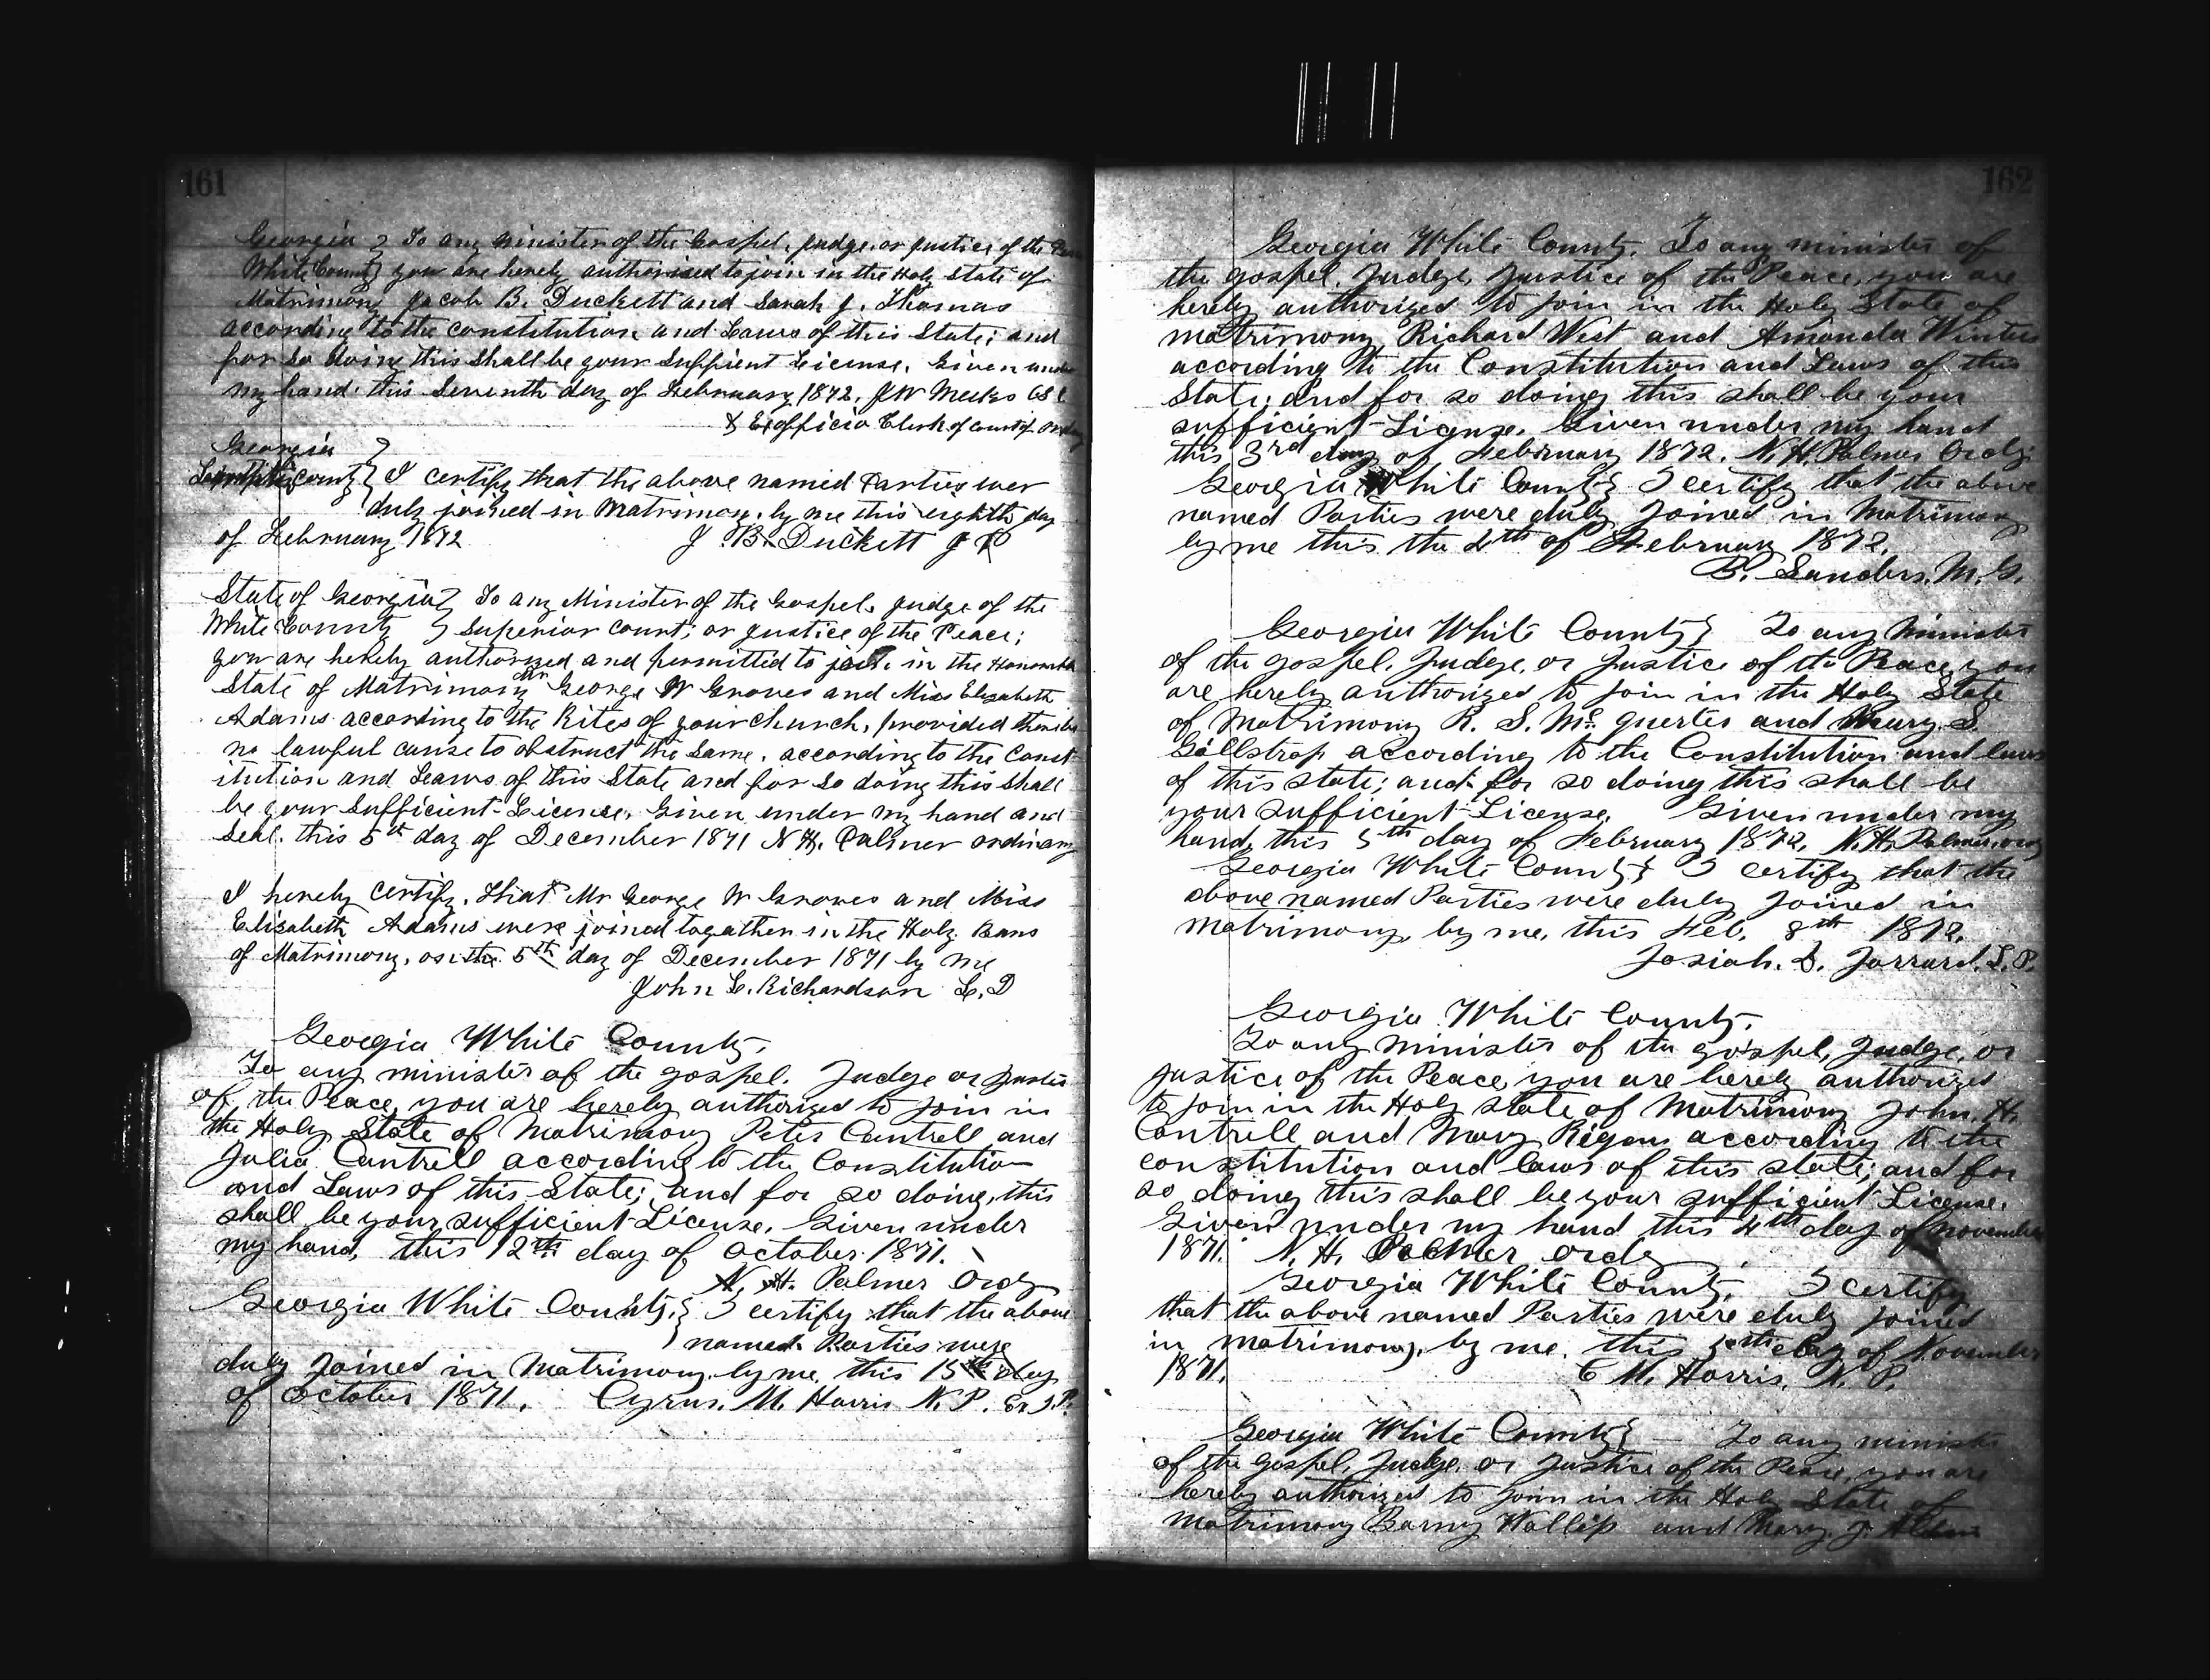 161
Georgia } To any minister of the Gospel, Judge, or Justice of the
White County } you are hereby authorised to join in the Holy State of
Matrimony Jacob B. Duckett and Sarah J. Thomas
according to the constitution and Laws of this State; and
for so doing this shall be your suffient License. Given under
my hand this Seventh day of February 1872. J W Meeks C S C
& Exofficio Clerk of court of
Georgia }
County } I certify that the above named Parties wer
duly joined in Matrimony by me this eighth day
of February 1872 J. B. Duckett J P
State of Georgia } To any Minister of the Gospel, Judge of the
White County } Superior Court; or Justice of the Peace;
you are hereby authorized and permitted to join in the Honorable
State of Matrimony Mr George W Groves and Miss Elizabeth
Adams according to the Rites of your church, provided there be
no lawful cause to obstruct the same, according to the Const-
itution and Leaws of this State and for so doing this shall
be your Sufficient License. Given under my hand and
Seal. this 5th day of December 1871 N H. Palmer ordinary
I hereby certify. That Mr George W Groves and Miss
Elizabeth Adams were joined togather in the Holy Bans
of Matrimony, on the 5th day of December 1871 by me
John L. Richardson L. D
Georgia White County.
To any minister of the gospel. Judge or Justice
of the Peace, you are hereby authorized to join in
the Holy State of Matrimony Peter Cantrell and
Julia Cantrell according to the Constitution
and Laws of this State; and for so doing, this
shall be your sufficient License. Given under
my hand, this 12th day of October 1871.
N. H. Palmer Ordy
Georgia White County. } I certify that the above
} named Parties were
duly Joined in Matrimony by me, this 15th day
of October 1871. Cyrus. M. Harris N. P. Ex J.P.
162
Georgia White County. To any minister of
the gospel, Judge, Justice of the Peace, you are
hereby authorized to join in the Holy State of
matrimony Richard West and Amanda Winters
according to the Constitution and Laws of this
State; and for so doing this shall be your
sufficient License. Given under my hand
this 3rd day of February 1872. N. H. Palmer Ordy.
Georgia White County } I certify that the above
named Parties were duly Joined in Matrimony
by me this the 4th of February 1872.
B. Sanders. M. G.
Georgia White County } To any Minister
of the gospel. Judge, or Justice of the Peace, you
are hereby authorized to join in the Holy State
of Matrimony R. S. Mc. querter and Mary. S.
Gillstrap according to the Constitution and laws
of this state; and for so doing this shall be
your sufficient License. Given under my
hand, this 5th day of February 1872. N. H. Palmer. ordy
Georgia White County } I certify that the
above named Parties were duly Joined in
matrimony, by me, this Feb. 8th 1872.
Josiah. D. Jarrard. J. P.
Georgia White County.
To any minister of the gospel, Judge, or
Justice of the Peace you are hereby authorized
to join in the Holy state of Matrimony John. H.
Cantrell and Mary Rigans according to the
constitution and laws of this state; and for
so doing this shall be your sufficient License.
Given under my hand this 4th day of November
1871. N. H. Palmer Ordy
Georgia White County. I certify
that the above named Parties were duly Joined
in matrimony, by me, this 5th day of November
1871. C M. Harris. N. P.
Georgia White County } To any minister
of the gospel, Judge, or Justice of the Peace, you are
hereby authorized to join in the Holy State of
matrimony Barny Wallis and Mary. J.